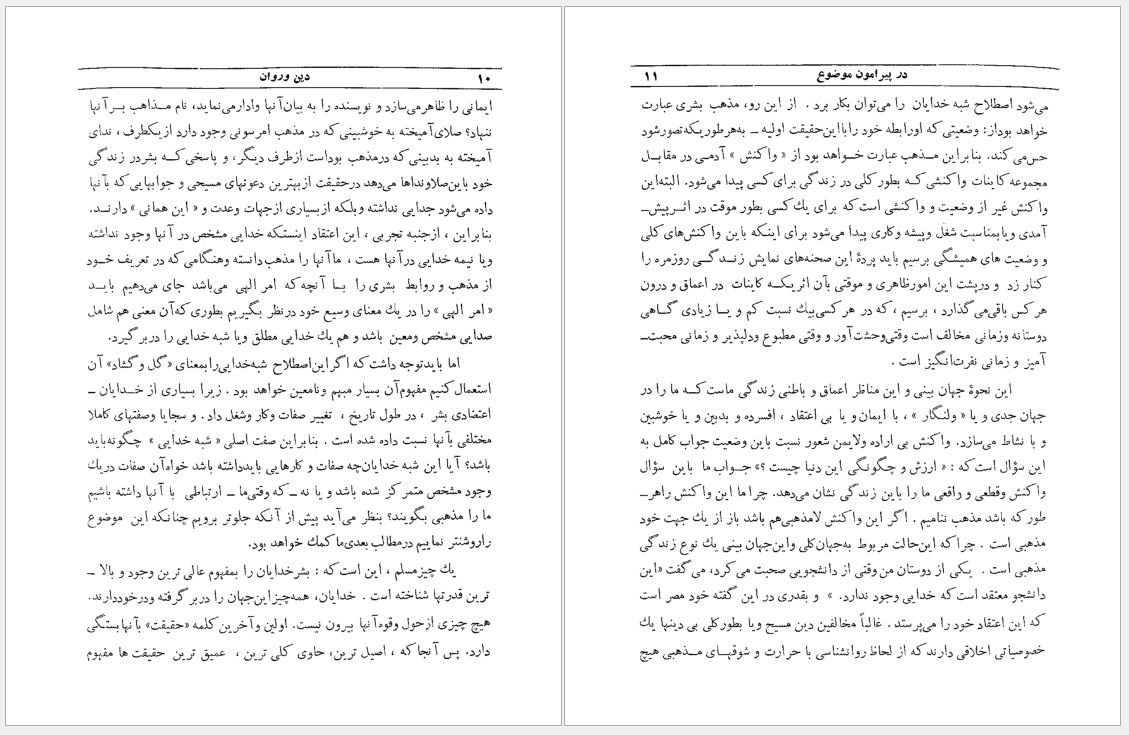 ۱۰ دین وروان
ایمانی را ظاهرمی‌سازد و نویسنده را به بیان‌آنها وادارمی‌نماید، نام مـذاهب بـر آنها
ننهاد؟ صلای‌آمیخته به خوشبینی‌که در مذهب امرسونی وجود دارد ازیکطرف ، ندای
آمیخته به بدبینی‌که درمذهب بوداست ازطرف دیگر، و پاسخی‌کـه بشردر زندگی
خود باین‌صلاونداها می‌دهد درحقیقت ازبهترین دعوتهای مسیحی و جوابهایی که بآنها
داده می‌شود جدایی نداشته وبلکه ازبسیاری ازجهات وحدت و « این همانی » دارنـد.
بنابراین ، ازجنبه تجربی ، این اعتقاد اینستکه خدایی مشخص در آنها وجود نداشته
ویا نیمه خدایی درآنها هست ، ماآنها را مذهب‌دانسته وهنگامی‌که در تعریف خـود
از مذهب و روابط بشری را بـا آنچه‌که امر الهی می‌باشد جای می‌دهیم بایـد
« امر الهی » را در یك معنای وسیع خود درنظر بگیریم بطوری که‌آن معنی هم شامل
صدایی مشخص ومعین باشد و هم یك خدایی مطلق ویا شبه خدایی را دربر گیرد.
اما بایدتوجه داشت‌که اگراین‌اصطلاح شبه‌خدایی‌رابمعنای «گل و گشاد» آن
استعمال‌کنیم مفهوم‌آن بسیار مبهم ونامعین خواهد بود . زیرا بسیاری از خـدایان ـ
اعتقادی بشر ، در طول تاریخ ، تغییر صفات وکار وشغل داد . و سجایا وصفتهای کاملا
مختلفی بآنها نسبت داده شده است . بنابراین صفت اصلی « شبه خدایی » چگونه‌باید
باشد؟ آیا این شبه خدایان‌چه صفات و کارهایی بایدداشته باشد خواه‌آن صفات دریك
وجود مشخص متمرکز شده باشد و یا نه ـ که وقتی‌ما ـ ارتباطی با آنها داشته باشیم
ما را مذهبی بگویند؟ بنظر می‌آید پیش از آنکه جلوتر برویم چنانکه این موضوع
راروشنتر نماییم درمطالب بعدی‌ماکمك خواهد بود.
یك چیزمسلم ، این است‌که : بشرخدایان را بمفهوم عالی ترین وجود و بالا ـ
ترین قدرتها شناخته است . خدایان، همه‌چیزاین‌جهان را دربر گرفته ودرخوددارند.
هیچ چیزی ازحول وقوه‌آنها بیرون نیست. اولین وآخرین کلمه «حقیقت» بآنهابستگی
دارد. پس آنجاکه ، اصیل ترین، حاوی کلی ترین ، عمیق ترین حقیقت ها مفهوم
در پیرامون موضوع ۱۱
می‌شود اصطلاح شبه خدایان را می‌توان بکار برد . از این رو، مذهب بشری عبارت
خواهد بوداز: وضعیتی‌که اورابطه خود رابااین‌حقیقت اولیه ـ به‌هرطوریکه‌تصورشود
حس‌می‌کند. بنابراین مـذهب عبارت خـواهد بود از « واکنش » آدمی در مقابـل
مجموعه‌کاینات واکنشی‌کـه بطورکلی در زندگی برای‌کسی پیدا می‌شود. البته‌این
واکنش غیر از وضعیت و واکنشی است‌که برای یك‌کسی بطور موقت در اثـرپیش‌ـ
آمدی ویابمناسبت شغل وپیشه وکاری پیدا می‌شود برای اینکه باین واکنش‌های‌کلی
و وضعیت های همیشگی برسیم باید پردهٔ این صحنه‌های نمایش زنـدگـی روزمره را
کنار زد و درپشت این امورظاهری و موقتی بآن اثریکـه کاینات در اعماق و درون
هر کس باقی‌می‌گذارد ، برسیم ، که در هر کسی‌بیك نسبت کم و یـا زیادی گـاهی
دوستانه وزمانی مخالف است وقتی‌وحشت‌آور و وقتی مطبوع ودلپذیر و زمانی محبت‌ـ
آمیز و زمانی نفرت‌انگیز است .
این نحوهٔ جهان بینی و این مناظر اعماق و باطنی زندگی ماست‌کـه ما را در
جهان جدی و یا « ولنگار » ، با ایمان‌و یا بی اعتقاد ، افسرده و بدبین و یا خوشبین
و با نشاط می‌سازد. واکنش بی اراده ولایمن شعور نسبت باین وضعیت جواب کامل به
این سؤال است‌که : « ارزش و چگونگی این دنیا چیست ؟» جـواب ما باین سؤال
واکنش وقطعی و راقعی ما را باین زندگی نشان می‌دهد. چرا ما این واکنش راهرـ
طور که باشد مذهب ننامیم . اگر این واکنش لامذهبی‌هم باشد باز از یك جهت خود
مذهبی است . چراکه این‌حالت مربوط به‌جهان‌کلی واین‌جهان بینی یك نوع زندگی
مذهبی است . یکی از دوستان من‌وقتی از دانشجویی صحبت می‌کرد، می‌گفت «این
دانشجو معتقد است‌که خدایی وجود ندارد. » و بقدری در این گفته خود مصر است
که این اعتقاد خود را می‌پرستد . غالباً مخالفین دین مسیح ویا بطورکلی بی دینها یك
خصوصیاتی اخلاقی دارندکه از لحاظ روانشناسی با حرارت و شوقهـای مـذهبی هیچ